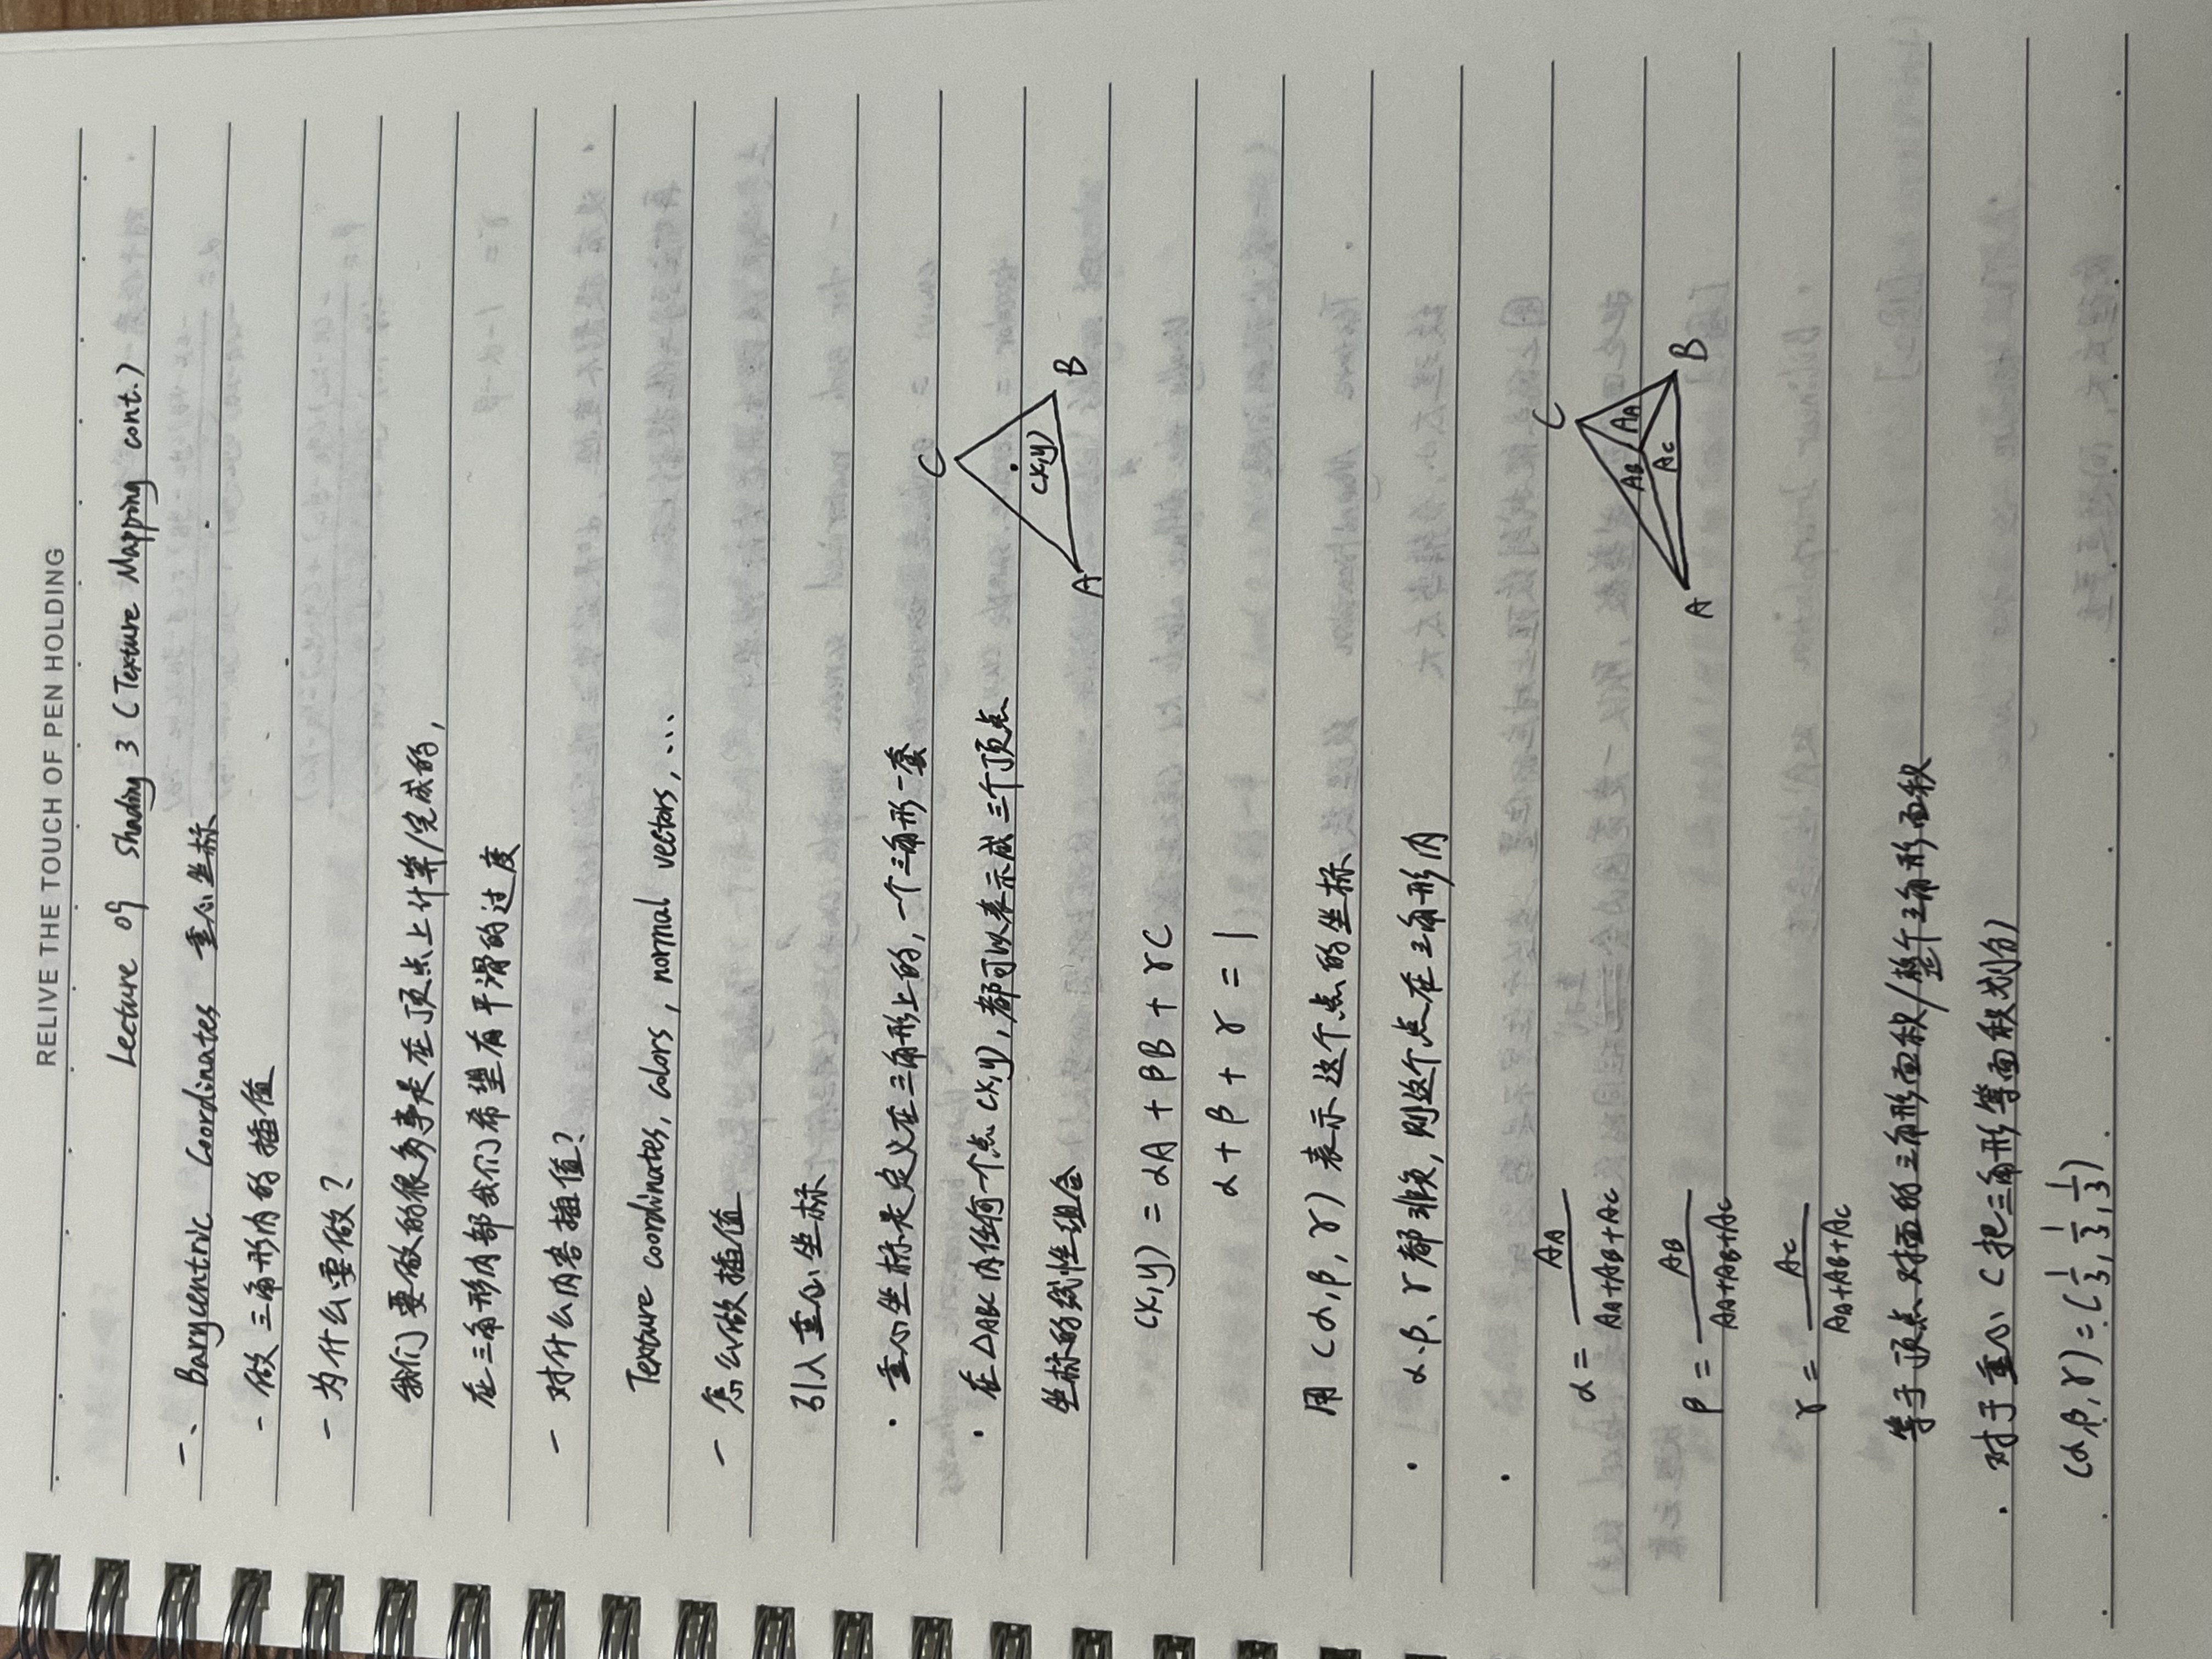 RELIVE THE TOUCH OF PEN HOLDING
Lecture 09 Shading 3 (Texture Mapping cont.)
一、Barycentric Coordinates 重心坐标
- 做三角形内的插值
- 为什么要做?
我们要做的很多事是在顶点上计算/完成的,
在三角形内部我们希望有平滑的过度
- 对什么内容插值?
Texture coordinates, colors, normal vectors, ...
- 怎么做插值
引入重心坐标
· 重心坐标是定义在三角形上的, 一个三角形一套
· 在△ABC内任何一个点(x,y), 都可以表示成三个顶点
坐标的线性组合
C
(x,y)
A B
(x,y) = αA + βB + γC
α + β + γ = 1
用 (α, β, γ) 表示这个点的坐标
· α、β、γ都非负, 则这个点在三角形内
·
α = AA / (AA+AB+AC)
β = AB / (AA+AB+AC)
γ = AC / (AA+AB+AC)
C
AB AA
AC
A B
等于顶点对面的三角形面积/整个三角形面积
· 对于重心 (把三角形等面积划分)
(α,β,γ) = (1/3, 1/3, 1/3)